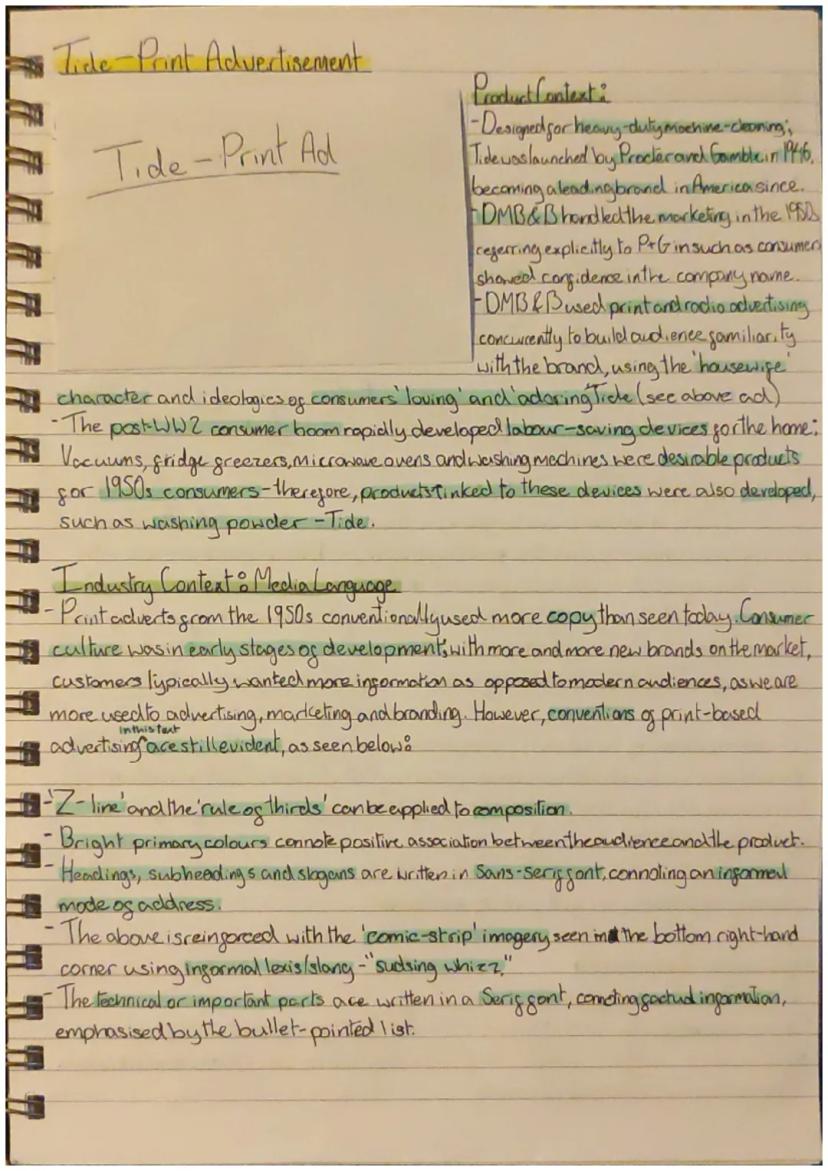 Tide-Print Advertisement
Tide-Print Ad
Product Context:
-Designed for heavy-duty machine-cleaning,
Tide was launched by Procter and Gamble in 1946,
becoming a leading brand in America since.
-DMB&B handled the marketing in the 1950s
referring explicitly to P+G in such as consumers
showed confidence in the company name.
-DMB&B used print and radio advertising
concurrently to build audience familiarity
with the brand, using the 'housewife'
character and ideologies of consumers 'loving' and 'adoring' Tide (see above ad)
-The post-WW2 consumer boom rapidly developed labour-saving devices for the home:
Vacuums, fridge freezers, microwave ovens and washing machines were desirable products
for 1950s consumers-therefore, products linked to these devices were also developed,
such as washing powder-Tide.
Industry Context: Media Language
-Print adverts from the 1950s conventionally used more copy than seen today. Consumer
culture was in early stages of development; with more and more new brands on the market,
customers typically wanted more information as opposed to modern audiences, as we are
more used to advertising, marketing and branding. However, conventions of print-based
in this text
advertising ^ are still evident, as seen below:
-'Z-line' and the 'rule of thirds' can be applied to composition.
-Bright primary colours connote positive association between the audience and the product.
-Headings, subheadings and slogans are written in Sans-serif font, connoting an informal
mode of address.
-The above is reinforced with the 'comic-strip' imagery seen in the bottom right-hand
corner using informal lexis/slang-"sudsing whizz."
-The technical or important parts are written in a Serif font, connoting factual information,
emphasised by the bullet-pointed list.